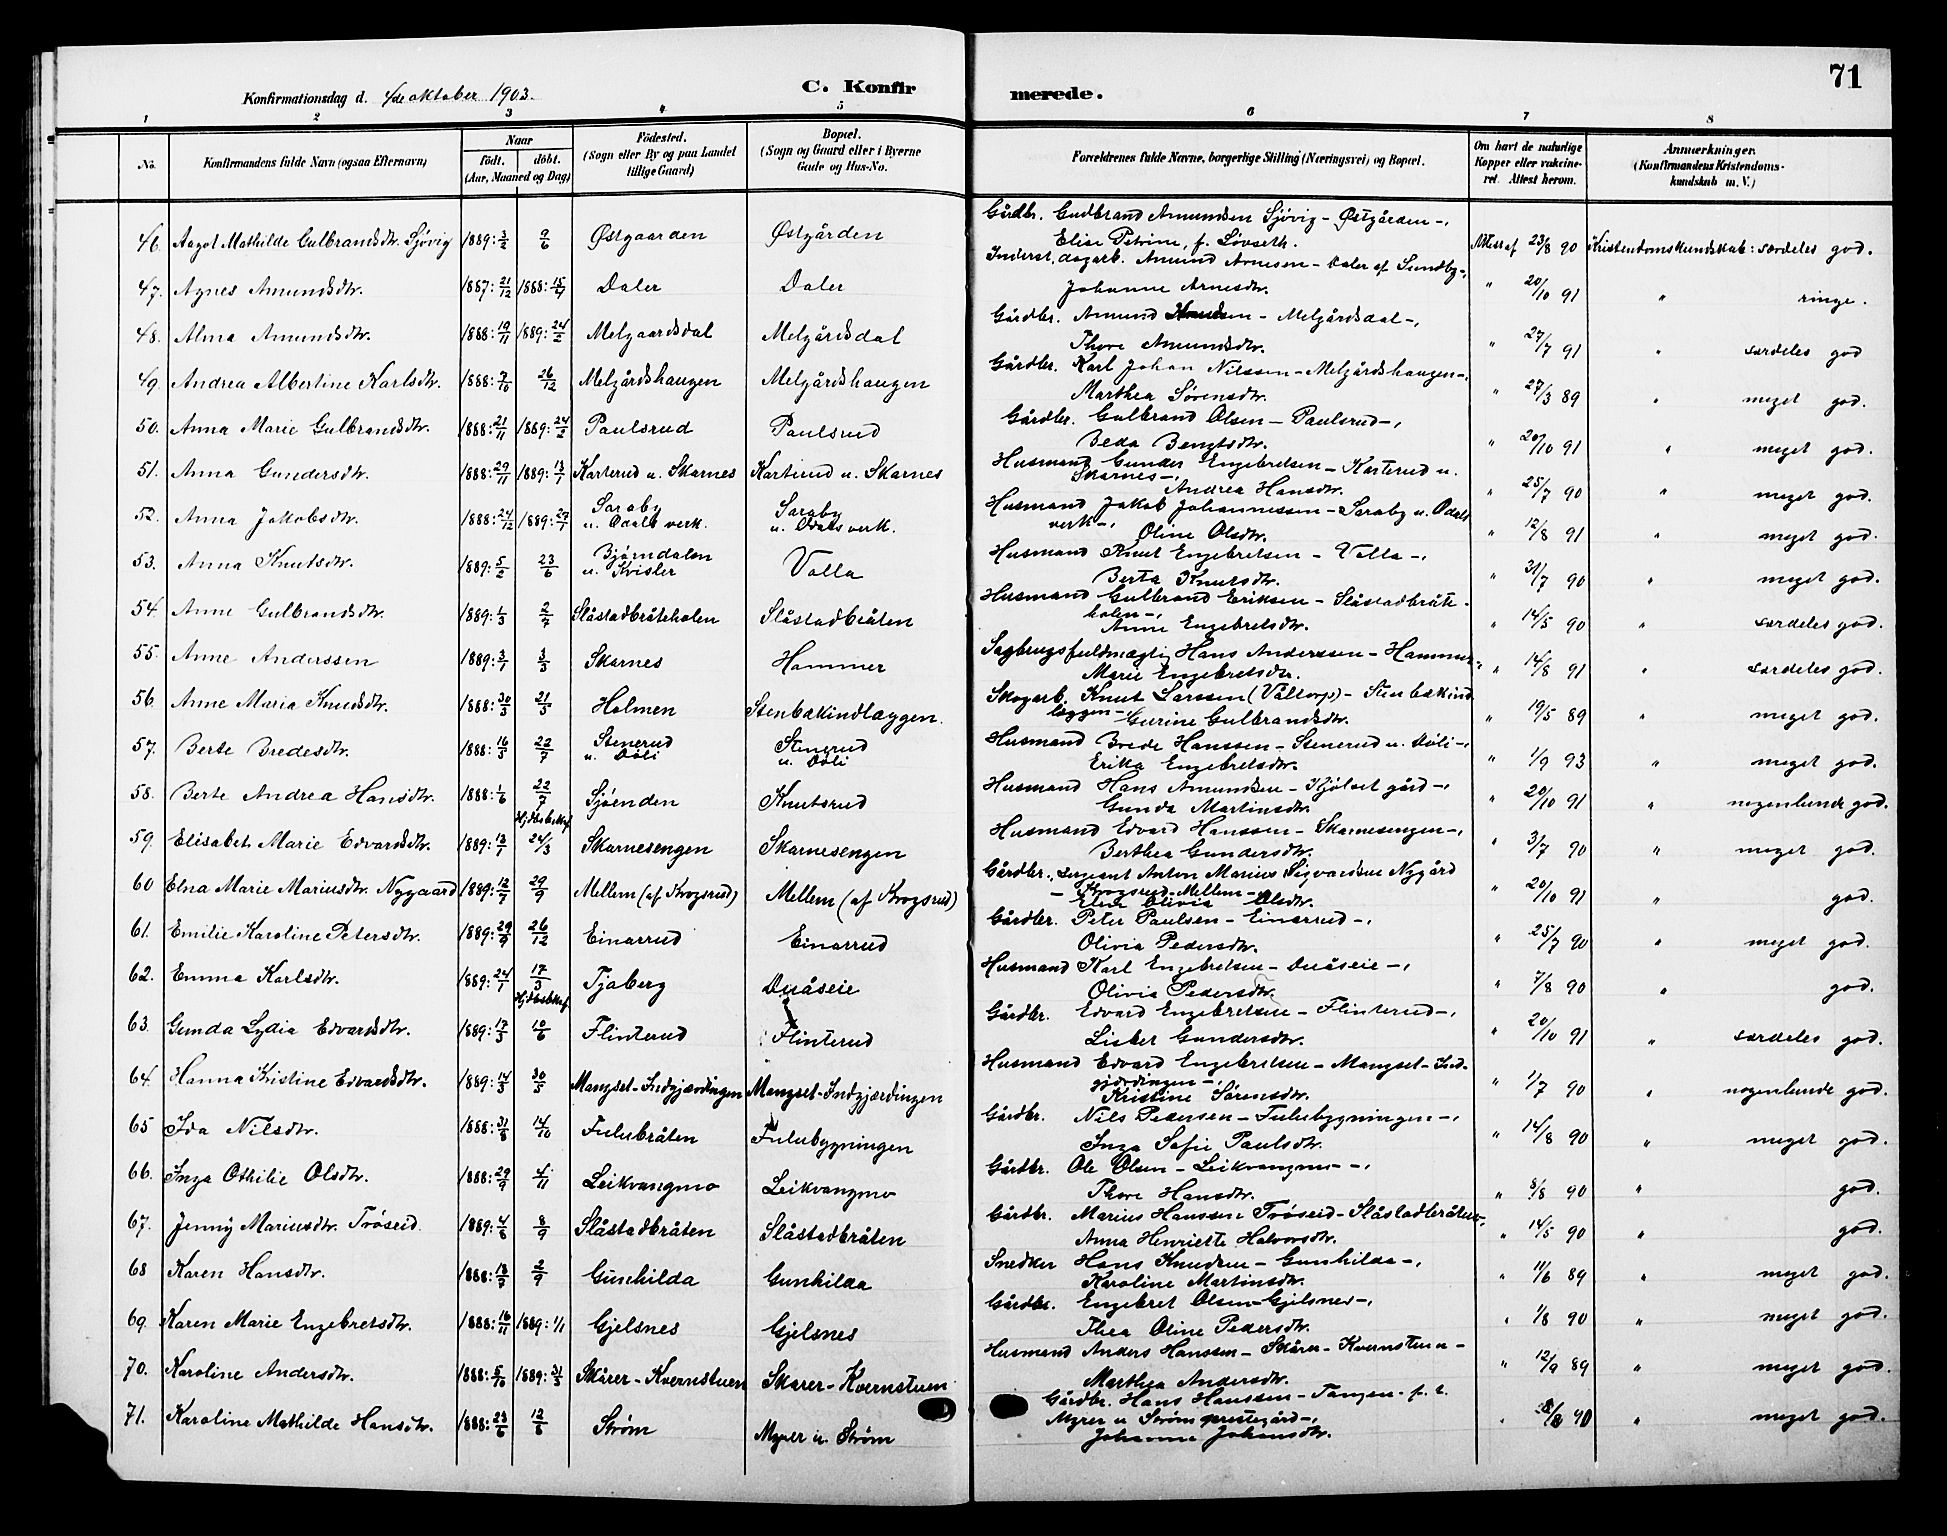 71
Konfirmationsdag d. 4de oktober 1903.
C. Konfirmerede.
1 2 3 4 5 6 7 8
No.
Konfirmandens fulde Navn (ogsaa Efternavn)
Naar
født. døbt.
(Aar, Maaned og Dag)
Födested.
(Sogn eller By og paa Landet
tillige Gaard)
Bopæl.
(Sogn og Gaard eller i Byerne
Gade og Hus-No.
Forældrenes fulde Navne, borgerlige Stilling (Næringsvei) og Bopæl.
Om havt de naturlige
Kopper eller vakcine-
ret. Attest herom.
Anmærkninger.
(Konfirmandens Kristendoms-
kundskab m. V.)
46. Aagot Mathilde Gulbrandsdtr. Sjøvig 1889: 3/2 9/6 Østgaarden Østgården Gårdbr. Gudbrand Amundsen Sjövig - Østgården -,
Elise Petrine, f. Løvseth. Attest af 23/8 90 Kristendomskundskab: særdeles god.
47. Agnes Amundsdtr. 1887: 21/12 1888: 15/4 Daler Daler Inderst, dagarb. Amund Arnesen - Daler af Sundby -,
Johanne Arnesdtr. " 20/10 91 " ringe.
48. Alma Amundsdtr. 1888: 19/11 1889: 24/2 Melgaardsdal Melgårdsdal Gårdbr. Amund Knudsen - Melgårdsdal -,
Thore Amundsdtr. " 27/7 91 " særdeles god
49. Andrea Albertine Karlsdtr. 1888: 7/10 26/12 Melgårdshaugen Melgårdshaugen Gårdbr. Karl Johan Nilssen - Melgårdshaugen -,
Marthea Sørensdtr. " 27/3 89 " meget god.
50. Anna Marie Gulbrandsdtr. 1888: 21/11 1889: 24/2 Paulsrud Paulsrud Gårdbr. Gulbrand Olsen - Paulsrud -,
Beda Bengtsdtr. " 20/10 91 " meget god.
51. Anna Gundersdtr. 1888: 29/11 1889: 13/1 Karterud u. Skarnes Karterud u. Skarnes Husmand Gunder Engebretsen - Karterud u.
Skarnes -, Andrea Hansdtr. " 25/7 90 " meget god.
52. Anna Jakobsdtr. 1888: 24/12 1889: 29/7 Saraby u. Odals verk. Saraby u. Odals verk. Husmand Jakob Johannessen - Saraby u. Odals
verk -, Oline Olsdtr. " 12/8 91 " meget god.
53. Anna Knutsdtr. 1889: 5/2 23/6 Bjørndalen u. Kvisler Valla Husmand Knut Engebretsen - Valla -,
Berta Knutsdtr. " 31/7 90 " meget god.
54. Anne Gulbrandsdtr. 1889: 1/3 2/7 Slåstadbråteholen Slåstadbråten Husmand Gulbrand Eriksen - Slåstadbråte-
holen -, Anne Engebretsdtr. " 14/5 90 " særdeles god.
55. Anne Anderssen 1889: 3/1 3/3 Skarnes Hammer Sagbrugsfuldmægtig Hans Anderssen - Hammer -,
Marie Engebretsdtr. " 14/8 91 " særdeles god.
56. Anne Maria Knudsdtr. 1888: 30/3 21/5 Holmen Stenbækindlæggen. Skogarb. Knut Larssen (Våltorp) - Stenbækind
læggen -, Gurine Gulbrandsdtr. " 19/5 89 " meget god.
57. Berte Bredesdtr. 1888: 16/5 22/7 Stenerud u. Døli Stenerud u. Døli Husmand Brede Hanssen - Stenerud u. Døli -,
Erika Engebretsdtr. " 1/9 93 " meget god.
58. Berte Andrea Hansdtr. 1888: 1/6 22/7 Sjøenden Knutsrud Husmand Hans Amundsen - Kjølset gård -,
Gunda Martinsdtr. " 20/10 91 " nogenlunde god.
59. Elisabet Marie Edvardsdtr. 1889: 13/1 Hjdbsbekrf. 24/3 Skarnesengen Skarnesengen Husmand Edvard Hanssen - Skarnesengen -,
Berthea Gundersdtr. " 3/7 90 " meget god.
60 Elna Marie Mariusdtr. Nygaard 1889: 12/7 29/9 Mellem (af Krogsrud) Mellem (af Krogsrud) Gårdbr., sergeant Anton Marius Sigvardsen Nygård
- Krogsrud-Mellem -
Elise Olivia Olsdtr. " 20/10 91 " god.
61. Emilie Karoline Petersdtr. 1889: 29/9 26/12 Einarrud Einarrud Gårdbr. Peter Paulsen - Einarrud -,
Olivia Pedersdtr. " 25/7 90 " meget god.
62. Emma Karlsdtr. 1889: 24/1 17/3 Hjdbsbekrf. Tjaberg Duåseie Husmand Karl Engebretsen - Duåseie -,
Olivia Pedersdtr. " 7/8 90 " god.
63. Gunda Lydia Edvardsdtr. 1889: 17/3 10/6 Flinterud Flinterud Gårdbr. Edvard Engebretsen - Flinterud -,
Lisbet Gundersdtr. " 20/10 91 " særdeles god.
64. Hanna Kristine Edvardsdtr. 1889: 14/3 30/5 Mangset-Indgjærdingen Mangset-Indgjærdingen Husmand Edvard Engebretsen - Mangset-Ind-
gjærdingen -,
Kristine Sørensdtr. " 1/7 90 " nogenlunde god.
65 Ida Nilsdtr. 1888: 31/8 14/10 Fulubråten Fulubygningen Gårdbr. Nils Pedersen - Fulubygningen -,
Inga Sofie Paulsdtr. " 14/8 90 " meget god.
66. Inga Othilie Olsdtr. 1888: 29/9 4/11 Leikvangmo Leikvangmo Gårdbr. Ole Olsen - Leikvangmo -,
Thore Hansdtr. " 8/8 90 " god.
67. Jenny Mariusdtr. Trøseid. 1889: 4/6 8/9 Slåstadbråten Slåstadbråten Gårdbr. Marius Hanssen Trøseid - Slåstadbråten -,
Anna Henriette Halvorsdtr. " 14/5 90 " god.
68 Karen Hansdtr. 1888: 18/7 2/9 Gunhilda Gunhilda Snedker Hans Knudsen - Gunhilda -,
Karoline Martinsdtr. " 11/6 89 " meget god.
69. Karen Marie Engebretsdtr. 1888: 16/11 1889: 1/1 Gjelsnes Gjelsnes Gårdbr. Engebret Olsen - Gjelsnes -,
Thea Oline Pedersdtr. " 1/8 90 " meget god.
70. Karoline Andersdtr. 1888: 5/10 1889: 31/3 Skårer-Kvernstuen Skårer-Kvernstuen Husmand Anders Hanssen - Skårer-Kvernstuen -
Marthea Andersdtr. " 12/9 89 " meget god.
71. Karoline Mathilde Hansdtr. 1888: 23/6 12/8 Strøm Myrer u. Strøm Gårdbr. Hans Hanssen - Tangen - f. t.
Myrer u Strøm prestegård -,
Johanne Johansdtr. " 90 " meget god.